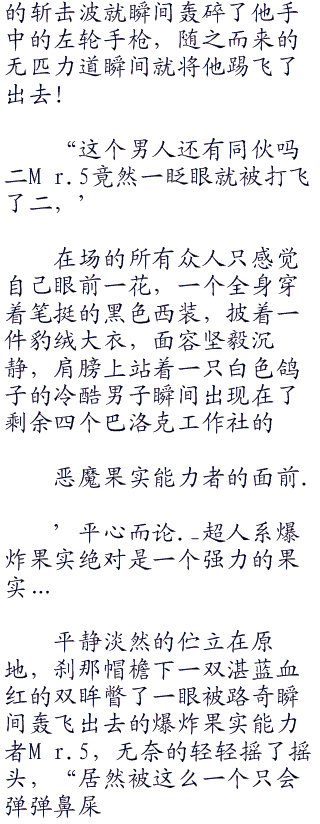 的斩击波就瞬间轰碎了他手
中的左轮手枪，随之而来的
无匹力道瞬间就将他踢飞了
出去！
“这个男人还有同伙吗
二M r.5竟然一眨眼就被打飞
了二，’
在场的所有众人只感觉
自己眼前一花，一个全身穿
着笔挺的黑色西装，披着一
件豹绒大衣，面容坚毅沉
静，肩膀上站着一只白色鸽
子的冷酷男子瞬间出现在了
剩余四个巴洛克工作社的
恶魔果实能力者的面前.
’平心而论._超人系爆
炸果实绝对是一个强力的果
实…
平静淡然的伫立在原
地，刹那帽檐下一双湛蓝血
红的双眸瞥了一眼被路奇瞬
间轰飞出去的爆炸果实能力
者M r.5，无奈的轻轻摇了摇
头，“居然被这么一个只会
弹弹鼻屎